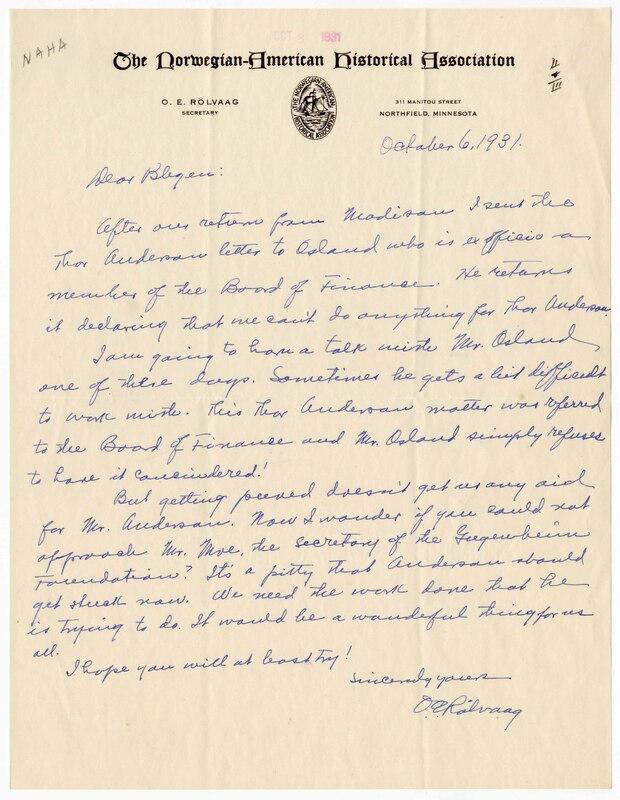 NAHA
OCT 1931
The Norwegian-American Historical Association
O. E. RÖLVAAG
SECRETARY
THE NORWEGIAN-AMERICAN HISTORICAL ASSOCIATION
311 MANITOU STREET
NORTHFIELD, MINNESOTA
October 6, 1931.
Dear Blegen:
After our return from Madison I sent the
Thor Anderson letter to Osland who is ex officio a
member of the Board of Finance. He returns
it declaring that we can't do anything for Thor Anderson.
I am going to have a talk with Mr. Osland
one of these days. Sometimes he gets a bit difficult
to work with. This Thor Anderson matter was referred
to the Board of Finance and Mr. Osland simply refuses
to have it concindered!
But getting peeved doesn't get us any aid
for Mr. Anderson. Now I wonder if you could not
approach Mr. Moe, the secretary of the Gugenheim
Foundation? It's a pitty that Anderson should
get stuck now. We need the work done that he
is trying to do. It would be a wondeful thing for us
all.
I hope you will at least try!
Sincerely yours
O.E. Rölvaag